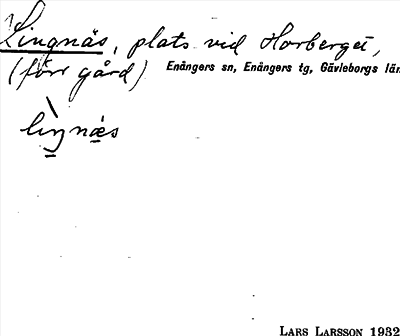 Lingnäs, plats vid Horberget,
(förr gård) Enångers sn, Enångers tg, Gävleborgs län
lìŋnäs
LARS LARSSON 1932